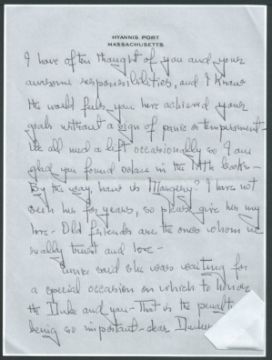 HYANNIS PORT
MASSACHUSETTS
I have often thought of you and your
awesome responsibilities, and I know
the world feels you have achieved your
goals without a sign of panic or temperament -
We all need a lift occasionally so I am
glad you found solace in the books -
By the way, how is Margery? I have not
seen her for years, so please give her my
love - Old friends are the ones whom we
really trust and love -
said she was waiting for
a special occasion on which to honor
the Duke and you - That is the penalty
being so important - dear